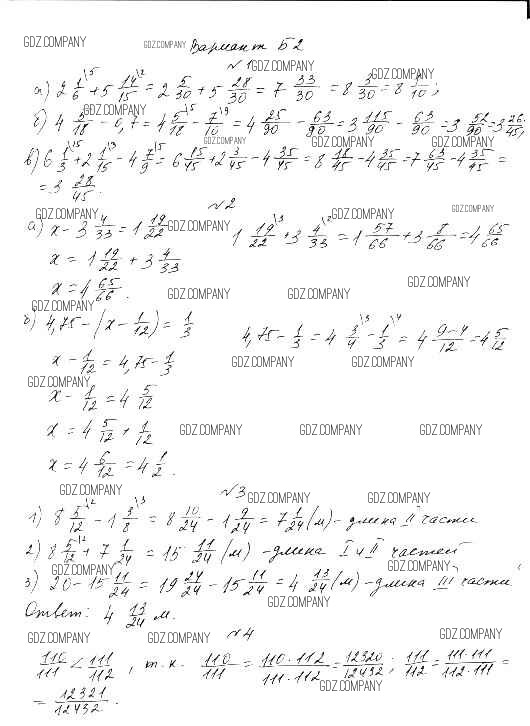 GDZ.COMPANY GDZ.COMPANY Вариант Б2
№1 GDZ.COMPANY
а) 2 1/6 \5 + 5 14/15 \2 = 2 5/30 + 5 28/30 = 7 33/30 = 8 3/30 = 8 1/10; GDZ.COMPANY
GDZ.COMPANY
б) 4 5/18 - 0,7 = 4 5/18 \5 - 7/10 \9 = 4 25/90 - 63/90 = 3 115/90 - 63/90 = 3 52/90 = 3 26/45;
GDZ.COMPANY GDZ.COMPANY GDZ.COMPANY
в) 6 1/3 \15 + 2 1/15 \3 - 4 7/9 \5 = 6 15/45 + 2 3/45 - 4 35/45 = 8 18/45 - 4 35/45 = 7 63/45 - 4 35/45 =
= 3 28/45.
№2
GDZ.COMPANY GDZ.COMPANY GDZ.COMPANY
а) x - 3 4/33 = 1 19/22 1 19/22 \3 + 3 4/33 \2 = 1 57/66 + 3 8/66 = 4 65/66
x = 1 19/22 + 3 4/33
x = 4 65/66. GDZ.COMPANY GDZ.COMPANY GDZ.COMPANY
GDZ.COMPANY
б) 4,75 - (x - 1/12) = 1/3 4,75 - 1/3 = 4 3/4 \3 - 1/3 \4 = 4 9-4/12 = 4 5/12
x - 1/12 = 4,75 - 1/3 GDZ.COMPANY GDZ.COMPANY
GDZ.COMPANY
x - 1/12 = 4 5/12
x = 4 5/12 + 1/12 GDZ.COMPANY GDZ.COMPANY GDZ.COMPANY
x = 4 6/12 = 4 1/2.
GDZ.COMPANY №3 GDZ.COMPANY GDZ.COMPANY
1) 8 5/12 \2 - 1 3/8 \3 = 8 10/24 - 1 9/24 = 7 1/24 (м) - длина II части
2) 8 5/12 \2 + 7 1/24 = 15 11/24 (м) - длина I и II частей
GDZ.COMPANY GDZ.COMPANY GDZ.COMPANY
3) 20 - 15 11/24 = 19 24/24 - 15 11/24 = 4 13/24 (м) - длина III части
GDZ.COMPANY
Ответ: 4 13/24 м.
GDZ.COMPANY GDZ.COMPANY №4 GDZ.COMPANY
110/111 < 111/112, т.к. 110/111 = 110·112/111·112 = 12320/12432; 111/112 = 111·111/112·111 =
GDZ.COMPANY
= 12321/12432.